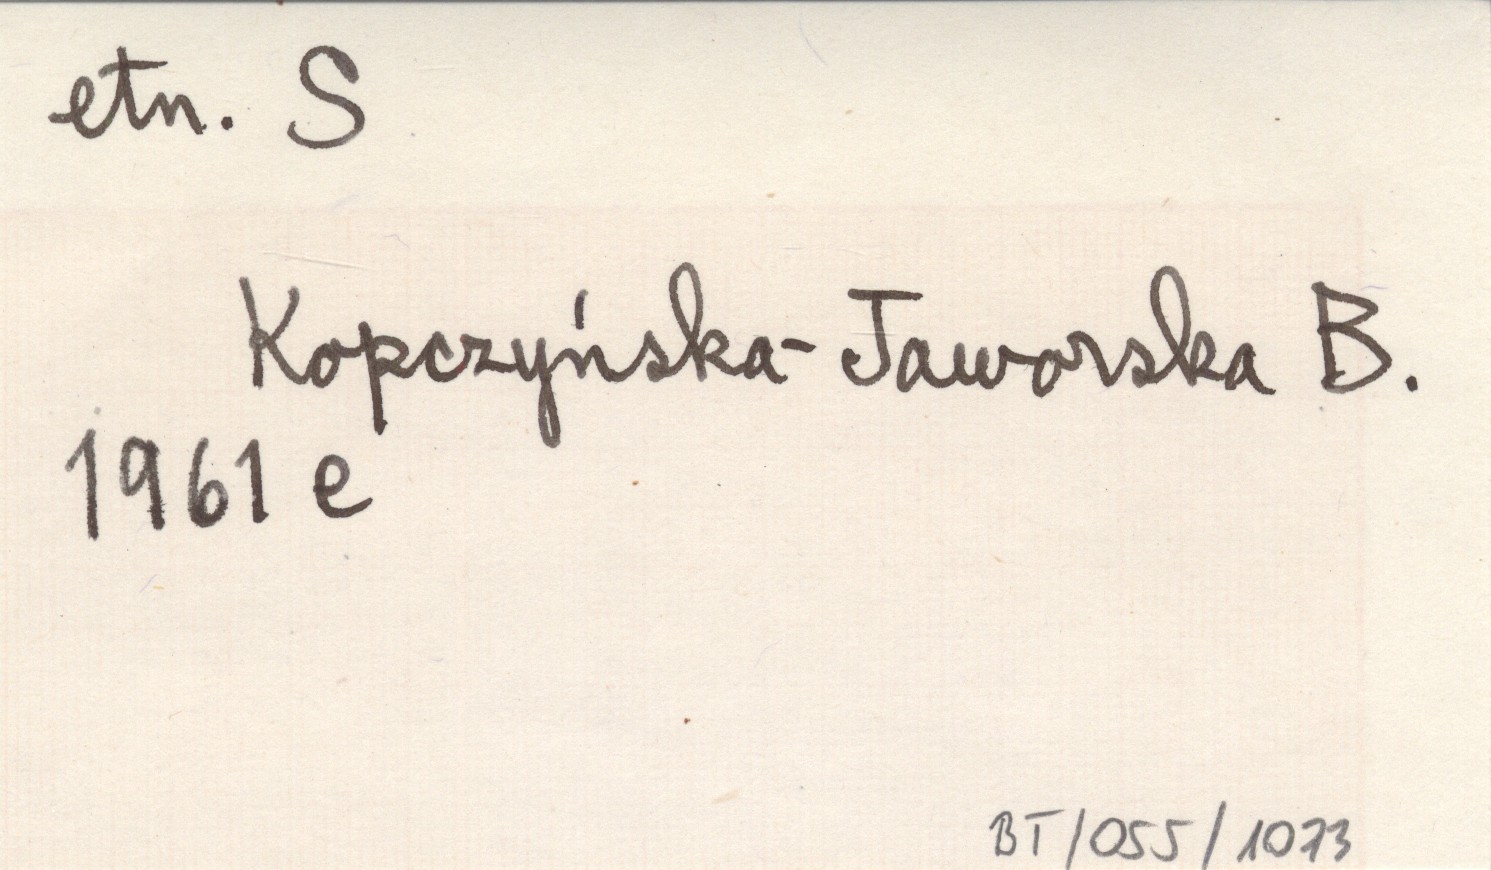 etn. S
Kopczyńska-Jaworska B.
1961 e
BT/055/1073